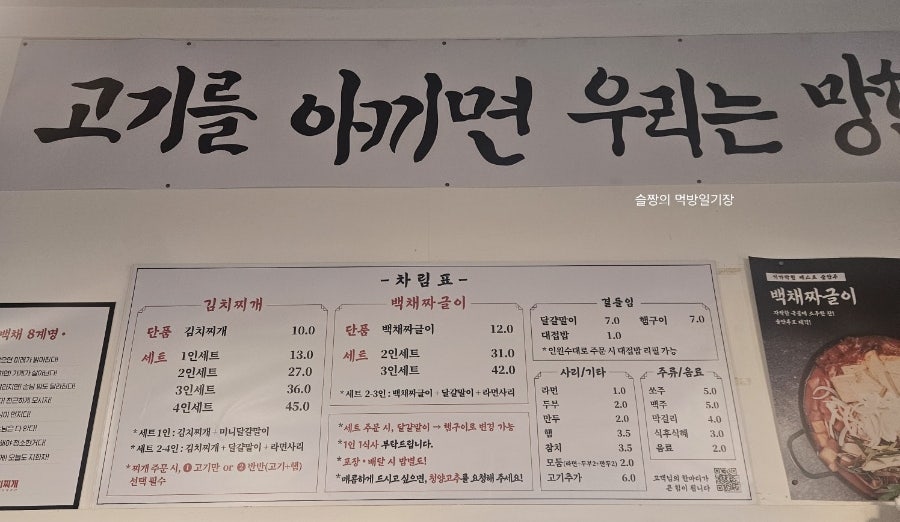 고기를 아끼면 우리는
슬짱의 먹방일기장
백채 8계명
- 차림표 -
김치찌개
단품 김치찌개 10.0
세트 1인세트 13.0
2인세트 27.0
3인세트 36.0
4인세트 45.0
* 세트 1인 : 김치찌개 + 미니달걀말이
* 세트 2-4인 : 김치찌개 + 달걀말이 + 라면사리
* 찌개 주문 시, ❶ 고기만 or ❷ 반반(고기+햄)
선택 필수
백채짜글이
단품 백채짜글이 12.0
세트 2인세트 31.0
3인세트 42.0
* 세트 2-3인 : 백채짜글이 + 달걀말이 + 라면사리
* 세트 주문 시, 달걀말이 → 햄구이로 변경 가능
* 1인 1식사 부탁드립니다.
* 포장 · 배달 시 밥별도!
* 매콤하게 드시고 싶으면, 청양고추를 요청해 주세요!
곁들임
달걀말이 7.0 햄구이 7.0
대접밥 1.0
* 인원수대로 주문 시 대접밥 리필 가능
사리/기타
라면 1.0
두부 2.0
만두 2.0
햄 3.5
참치 3.5
모둠(라면+두부2+만두2) 2.0
고기추가 6.0
주류/음료
쏘주 5.0
맥주 5.0
막걸리 4.0
식후식혜 3.0
음료 2.0
고객님의 한마디가
큰 힘이 됩니다
백채짜글이